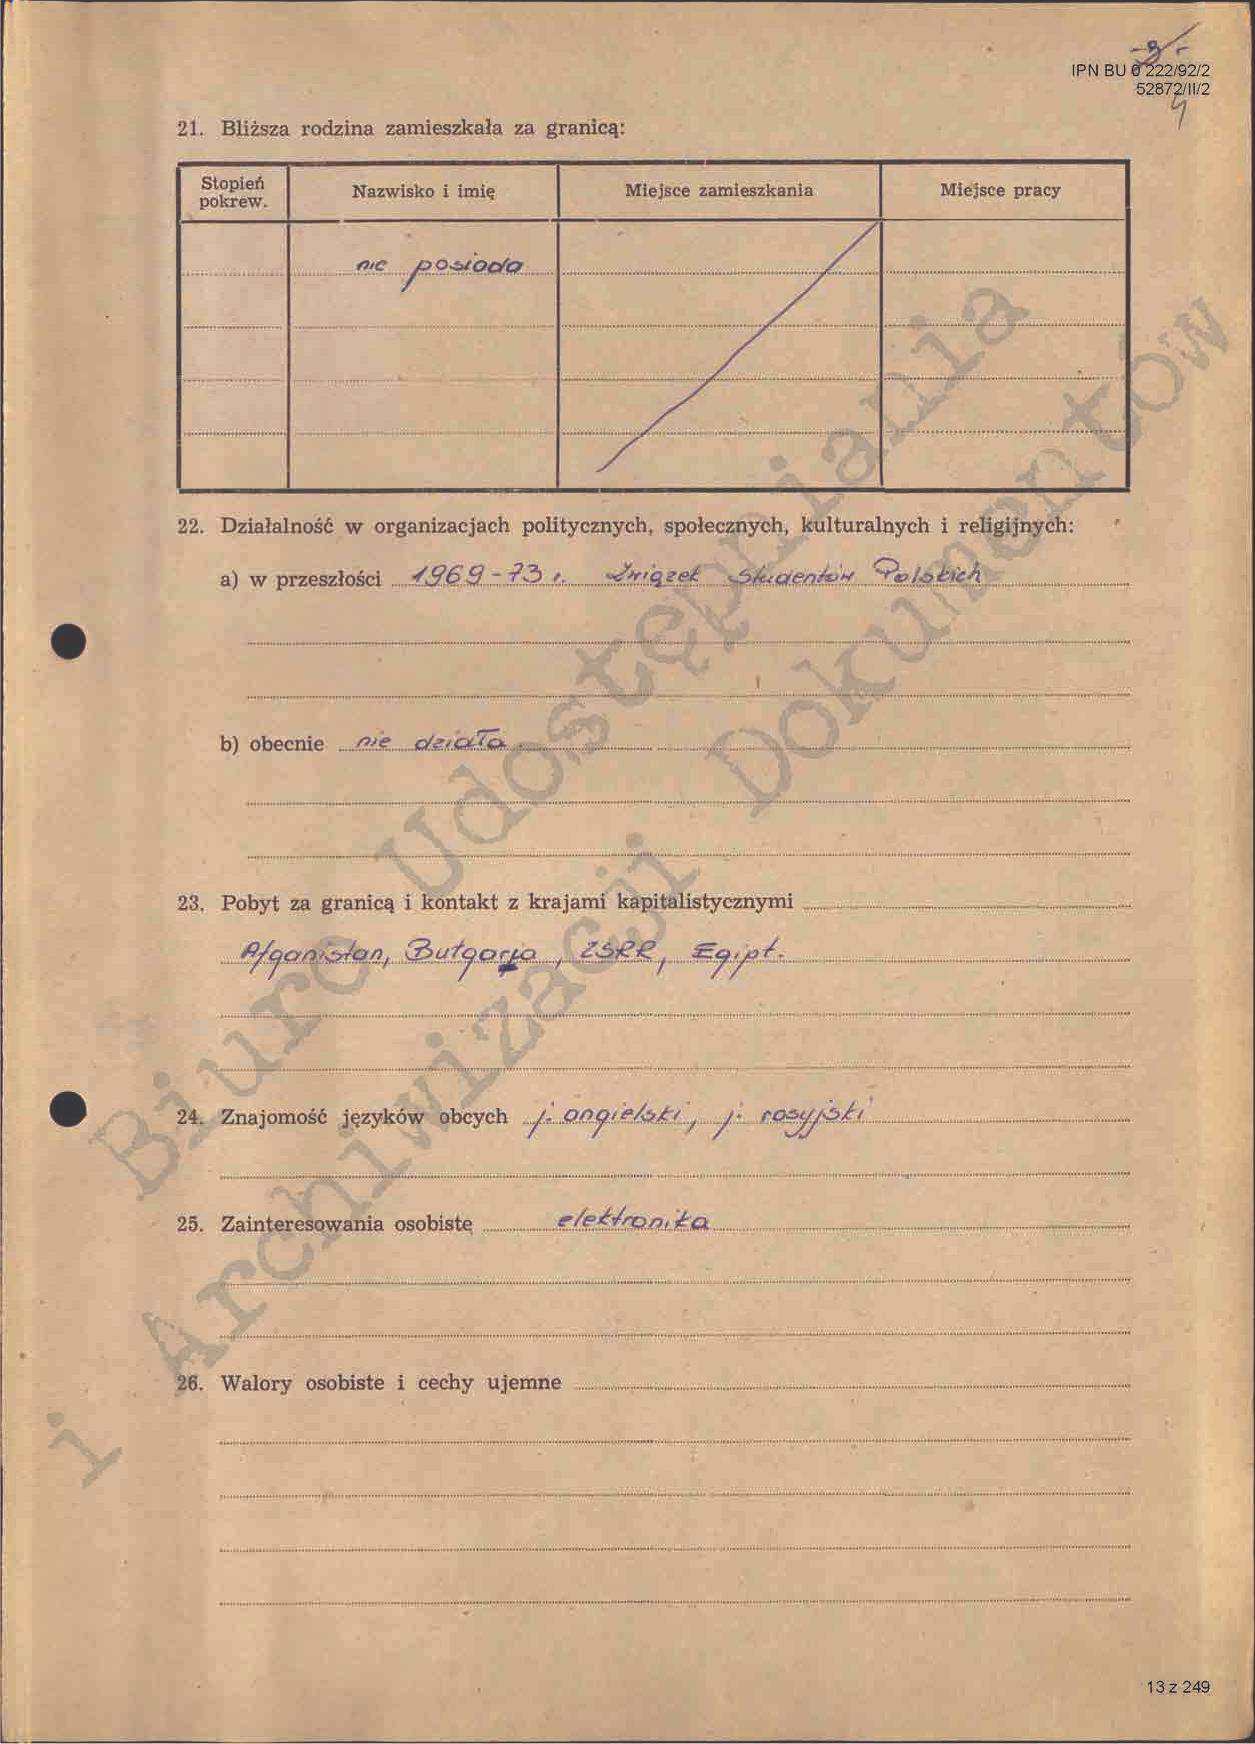 -3-
IPN BU 0 222/92/2
52872/II/2
4
21. Bliższa rodzina zamieszkała za granicą:
Stopień pokrew. Nazwisko i imię Miejsce zamieszkania Miejsce pracy
nie posiada
22. Działalność w organizacjach politycznych, społecznych, kulturalnych i religijnych:
a) w przeszłości 1969-73 r. Związek Studentów Polskich
b) obecnie nie działa
23. Pobyt za granicą i kontakt z krajami kapitalistycznymi
Afganistan, Bułgaria, ZSRR, Egipt.
24. Znajomość języków obcych j. angielski, j. rosyjski
25. Zainteresowania osobiste elektronika
26. Walory osobiste i cechy ujemne
Biuro Udostępniania
i Archiwizacji Dokumentów
13 z 249